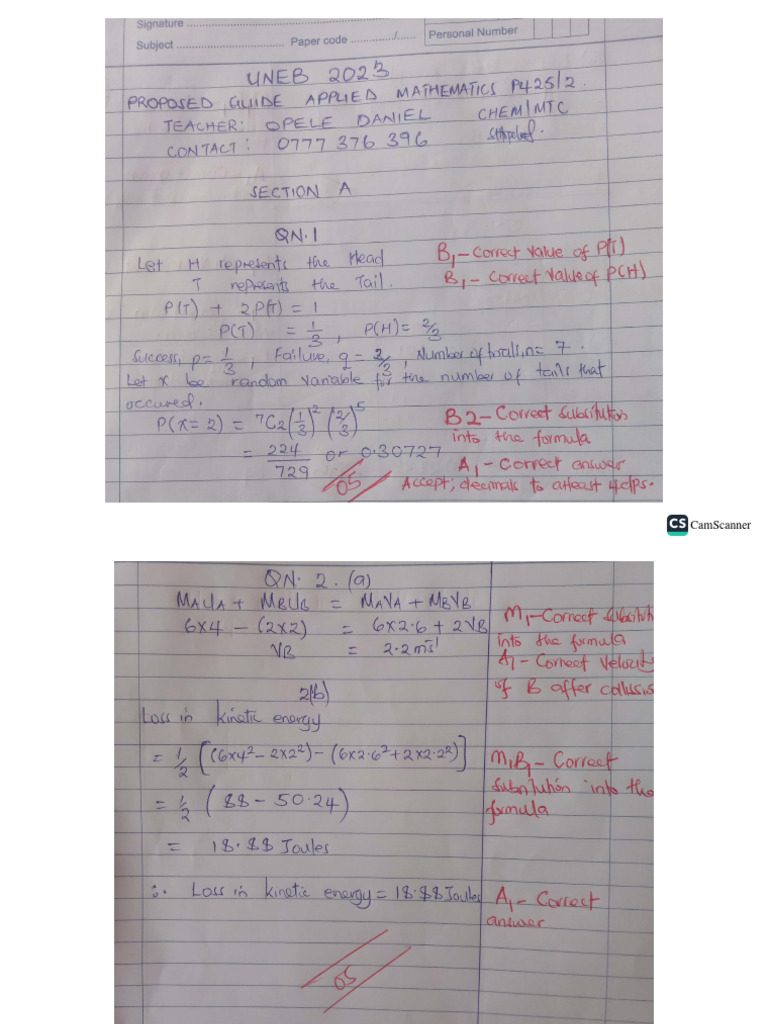 Signature ........................
Subject ........................ Paper code ............../......
Personal Number
UNEB 2023
PROPOSED GUIDE APPLIED MATHEMATICS P425/2.
TEACHER: OPELE DANIEL CHEM/MTC
CONTACT: 0777 376 396
SECTION A
QN.1
Let H represents the Head
T represents the Tail.
B₁-Correct value of P(T)
B₁- Correct value of P(H)
P(T) + 2P(T) = 1
P(T) = 1/3, P(H) = 2/3
Success, p = 1/3, Failure, q = 2/3, Number of trials, n = 7.
Let x be random variable for the number of tails that
occured.
P(x=2) = ⁷C₂(1/3)²(2/3)⁵
= 224/729 or 0.30727
B2-Correct substitution
into the formula
A₁-Correct answer
05
Accept; decimals to atleast 4dps.
CS CamScanner
QN. 2. (a)
MAUA + MBUB = MAVA + MBVB
6x4 - (2x2) = 6x2.6 + 2VB
VB = 2.2ms⁻¹
M₁-Correct substituti
into the formula
A₁- Correct Velocity
of B after collissio
2(b)
Loss in kinetic energy
= 1/2 [(6x4² - 2x2²) - (6x2.6² + 2x2.2²)]
= 1/2 (88 - 50.24)
= 18.88 Joules
M₁B₁- Correct
substitution into the
formula
∴ Loss in kinetic energy = 18.88 Joules
A₁- Correct
answer
05